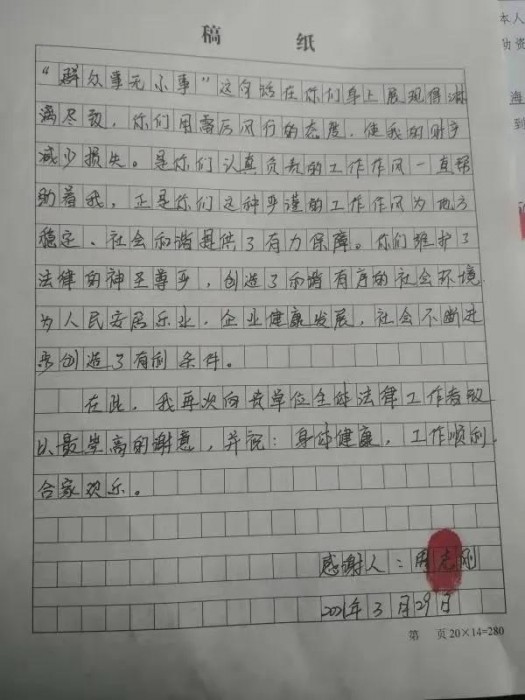 稿 纸
“群众事无小事”这句话在你们身上展现得淋
漓尽致，你们用雷厉风行的态度，使我的财产
减少损失。是你们认真负责的工作作风一直帮
助着我，正是你们这种严谨的工作作风为地方
稳定、社会和谐提供了有力保障。你们维护了
法律的神圣尊严，创造了和谐有序的社会环境
为人民安居乐业，企业健康发展，社会不断进
步创造了有利条件。
在此，我再次向贵单位全体法律工作者致
以最崇高的谢意，并祝：身体健康，工作顺利，
合家欢乐。
感谢人：周光刚
2021年3月29日
第 页 20×14=280
本人